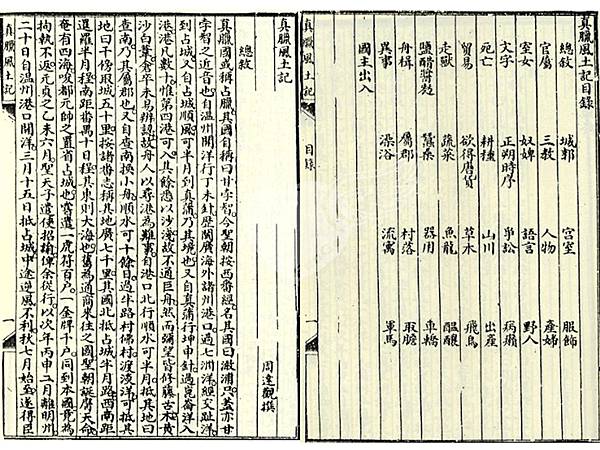 真臘風土記目錄
總敘 城郭 宮室 服飾
官屬 三教 人物 產婦
室女 奴婢 語言 野人
文字 正朔時序 爭訟 病癩
死亡 耕種 山川 出產
貿易 欲得唐貨 草木 飛鳥
走獸 蔬菜 魚龍 醞釀
鹽醋醬麴 蠶桑 器用 車轎
舟楫 屬郡 村落 取膽
異事 澡浴 流寓 軍馬
國主出入
真臘風土記 目錄 一
真臘風土記
周達觀撰
總敘
真臘國或稱占臘其國自稱曰甘孛智今聖朝按西番經名其國曰澉浦只蓋亦甘
孛智之近音也自溫州開洋行丁未針歷閩廣海外諸州港口過七洲洋經交趾洋
到占城又自占城順風可半月到真蒲乃其境也又自真蒲行坤申針過崑崙洋入
港港凡數十惟第四港可入其餘悉以沙淺故不通巨舟然而彌望皆修藤古木黃
沙白葦倉卒未易辨認故舟人以尋港為難事自港口北行順水可半月抵其地曰
查南乃其屬郡也又自查南換小舟順水可十餘日過半路村佛村渡淡洋可抵其
地曰干傍取城五十里按諸番志稱其地廣七千里其國北抵占城半月路西南距
暹羅半月程南距番禺十日程其東則大海也舊為通商來往之國聖朝誕膺天命
奄有四海唆都元帥之置省占城也嘗遣一虎符百戶一金牌千戶同到本國竟為
拘執不返元貞之乙未六月聖天子遣使招諭俾余從行以次年丙申二月離明州
二十日自溫州港口開洋三月十五日抵占城中途逆風不利秋七月始至遂得臣
真臘風土記 一